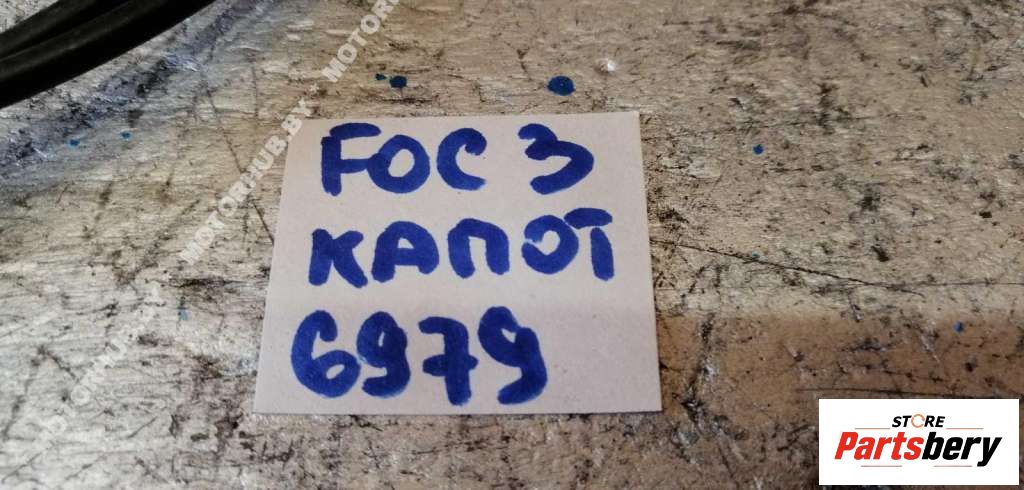 MOTORHUB.BY - MOTOR
MOTORHUB.BY
FOC 3
КАПОТ
6979
STORE
Partsbery